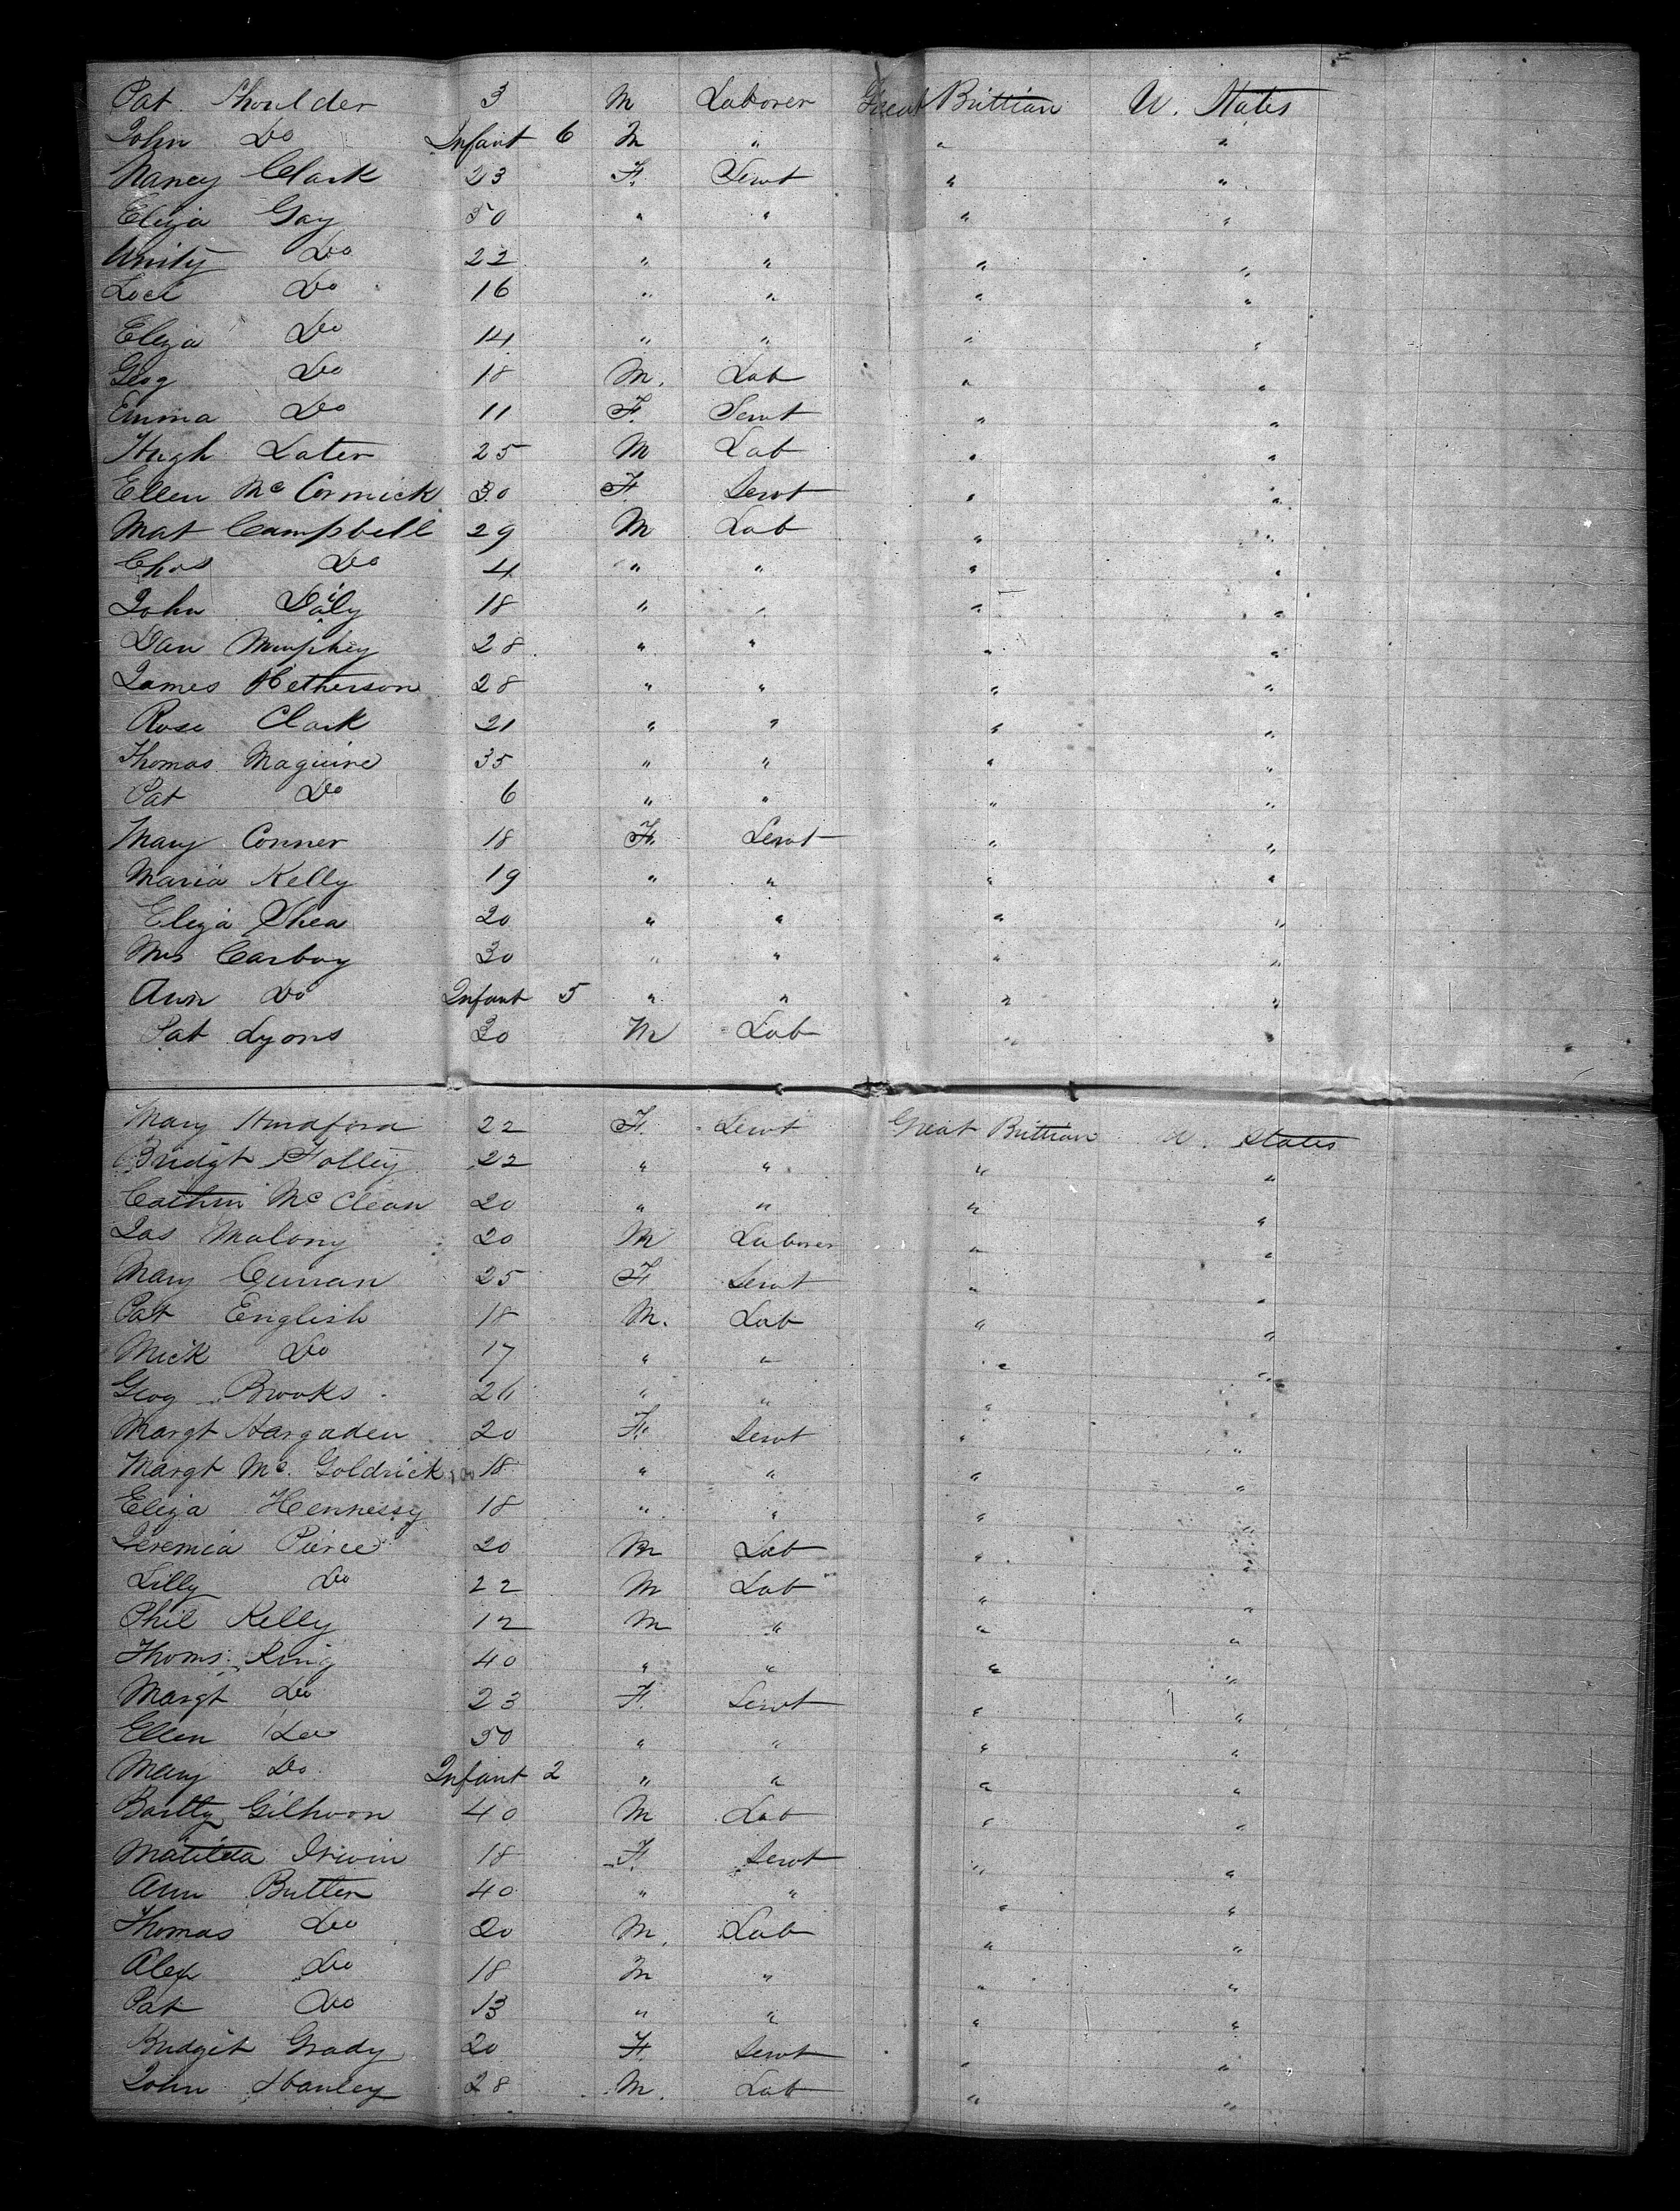 Pat Shoulder 3 M Laborer Great Brittian U. States
John Do Infant 6 M " " "
Nancy Clark 23 F. Servt " "
Eliza Gay 50 " " " "
Unity Do 22 " " " "
Do 16 " " " "
Eliza Do 14 " " " "
Geog Do 18 M. Lab " "
Emma Do 11 F. Servt " "
Hugh Later 25 M Lab " "
Ellen Mc Cormick 30 F. Servt " "
Mat Campbell 29 M Lab " "
Chas Do 4 " " " "
John Daly 18 " " " "
Dan Murphey 28 " " " "
James Hetherson 28 " " " "
Rose Clark 21 " " " "
Thomas Maguire 35 " " " "
Pat Do 6 " " " "
Mary Conner 18 F. Servt " "
Maria Kelly 19 " " " "
Eliza Shea 20 " " " "
Mrs Carboy 30 " " " "
Ann Do Infant 5 " " " "
Pat Lyons 30 M Lab " "
Mary Hurdford 22 F. Servt Great Brittian U. States
Bridgt Folley 22 " " " "
Cathrn Mc Clean 20 " " " "
Jas Malony 20 M Laborer " "
Mary Curran 25 F Servt " "
Pat English 18 M. Lab " "
Mick Do 17 " " " "
Geog Brooks 26 " " "
Margt Hargaden 20 F. Servt " "
Margt Mc. Goldrick 18 " " " "
Eliza Hennessy 18 " " " "
Jeremia Pierce 20 M Lab " "
Lilly Do 22 M Lab " "
Phil Kelly 12 M " " "
Thoms. King 40 " " " "
Margt Do 23 F. Servt " "
Ellen Do 50 " " " "
Mary Do Infant 2 " " " "
Bartly Gilhoon 40 M Lab " "
Matilda Irwin 18 F. Servt " "
Ann Butler 40 " " " "
Thomas Do 20 M. Lab " "
Alex Do 18 M " " "
Pat Do 13 " " " "
Bridgit Grady 20 F. Servt " "
John Hanley 28 M. Lab " "